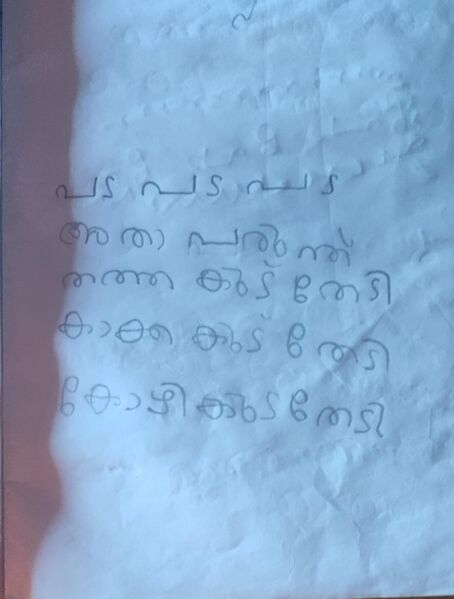 പട പട പട
അതാ പരുന്ത്
തത്ത കൂട് തേടി
കാക്ക കൂട് തേടി
കോഴി കൂട് തേടി